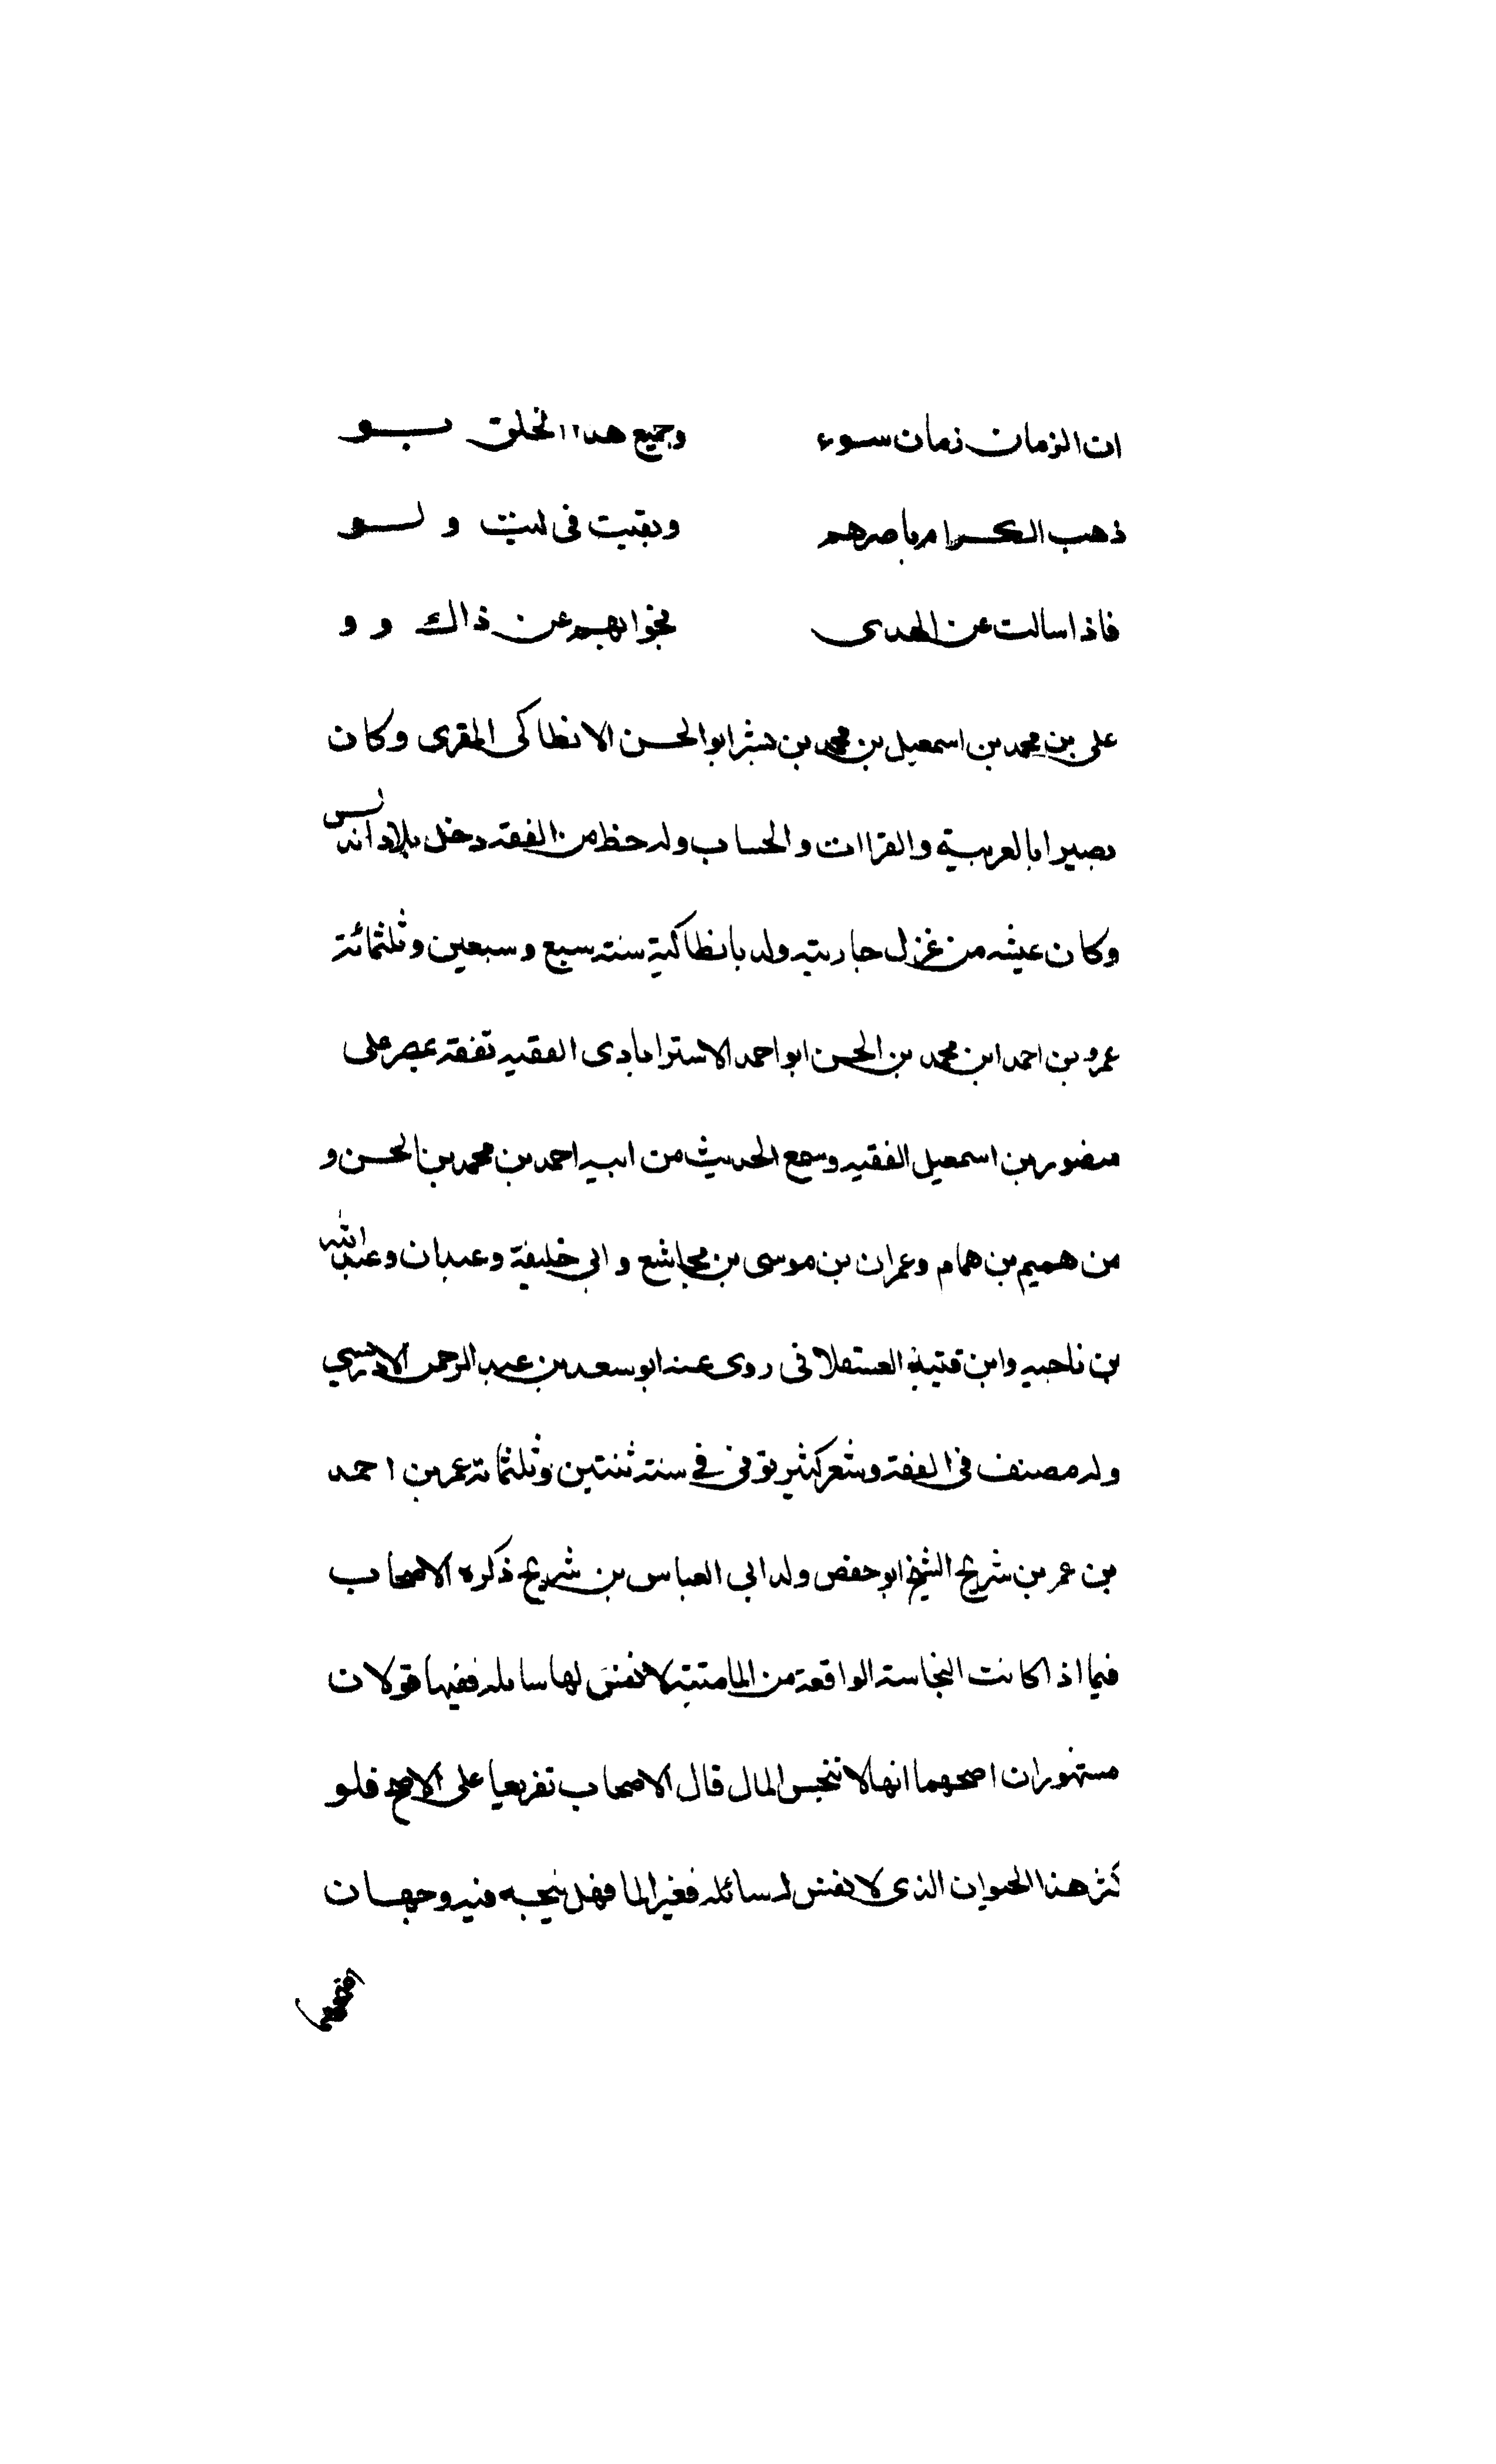 ان الزمان زمان سوء وجميع هدا الخلق بو
ذهب الكرام باصرهم وبقيت في ليت و لو
فاذا سالت عن الهدى فجوابهم عن ذاك و و
على بن محمد بن اسمعيل بن محمد بن بشر ابو الحسن الانطاكى المقرى وكان
بصيرا بالعربية والقراات والحساب وله حظ من الفقه دخل بلاد اندلس
وكان عيشه من غزل جاريته ولد بانطاكية سنة سبع وسبعين وثلثمائة
عمرو بن احمد ابن محمد بن الحسن ابو احمد الاسترابادى الفقيه تفقه بمصر على
منصور بن اسمعيل الفقيه وسمع الحديث من ابيه احمد بن محمد بن الحسن و
من هميم بن همام وعمران بن موسى بن مجاشع وابى خليفة وعبدان وعبد الله
بن ناجيه وابن قتيبة العسقلانى روى عنه ابو سعد بن عبد الرحمن الادريسي
وله مصنف فى الفقه وشعر كثير توفى في سنة ثنتين وثلثمائة عمر بن احمد
بن عمر بن شريح الشيخ ابو حفص ولد ابى العباس بن شريح ذكره الاصحاب
فيما اذا كانت النجاسة الواقعة من الما ميتة لا نفس لها سائله ففيها قولان
مشهوران اصحهما انها لا تنجس المال قال الاصحاب تفريعا على الاصح فلو
كثر هذا الحيوان الذى لا نفس له سائله فغير الما فهل ينجسه فيه وجهان